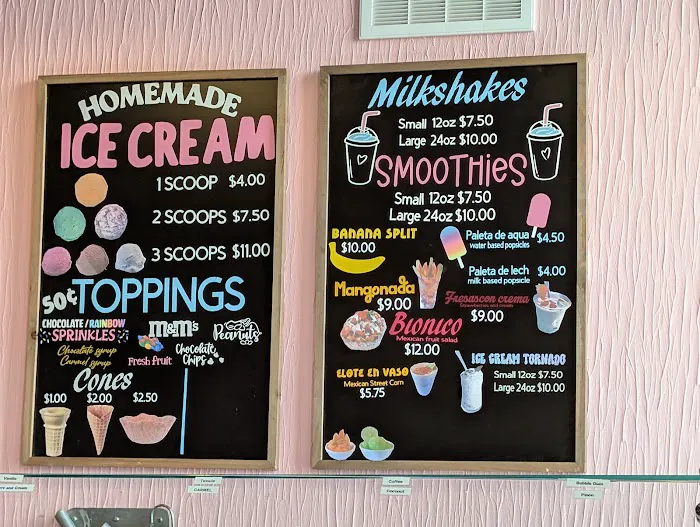 HOMEMADE
ICE CREAM
1 SCOOP $4.00
2 SCOOPS $7.50
3 SCOOPS $11.00
50¢ TOPPINGS
CHOCOLATE/RAINBOW
SPRINKLES
Chocolate syrup
Caramel syrup
m&m's
Peanuts
Fresh fruit
Chocolate
Chips
Cones
$1.00 $2.00 $2.50
Milkshakes
Small 12oz $7.50
Large 24oz $10.00
SMOOTHiES
Small 12oz $7.50
Large 24oz $10.00
BANANA SPLIT
$10.00
Paleta de aqua
water based popsicles
$4.50
Paleta de lech
milk based popsicle
$4.00
Mangonada
$9.00
Fresascon crema
Strawberries and cream
$9.00
Bionico
Mexican fruit salad
$12.00
ELOTE EN VASO
Mexican Street Corn
$5.75
ICE CREAM TORNADO
Small 12oz $7.50
Large 24oz $10.00
Vanilla
Coffee
Coconut
Bubble Gum